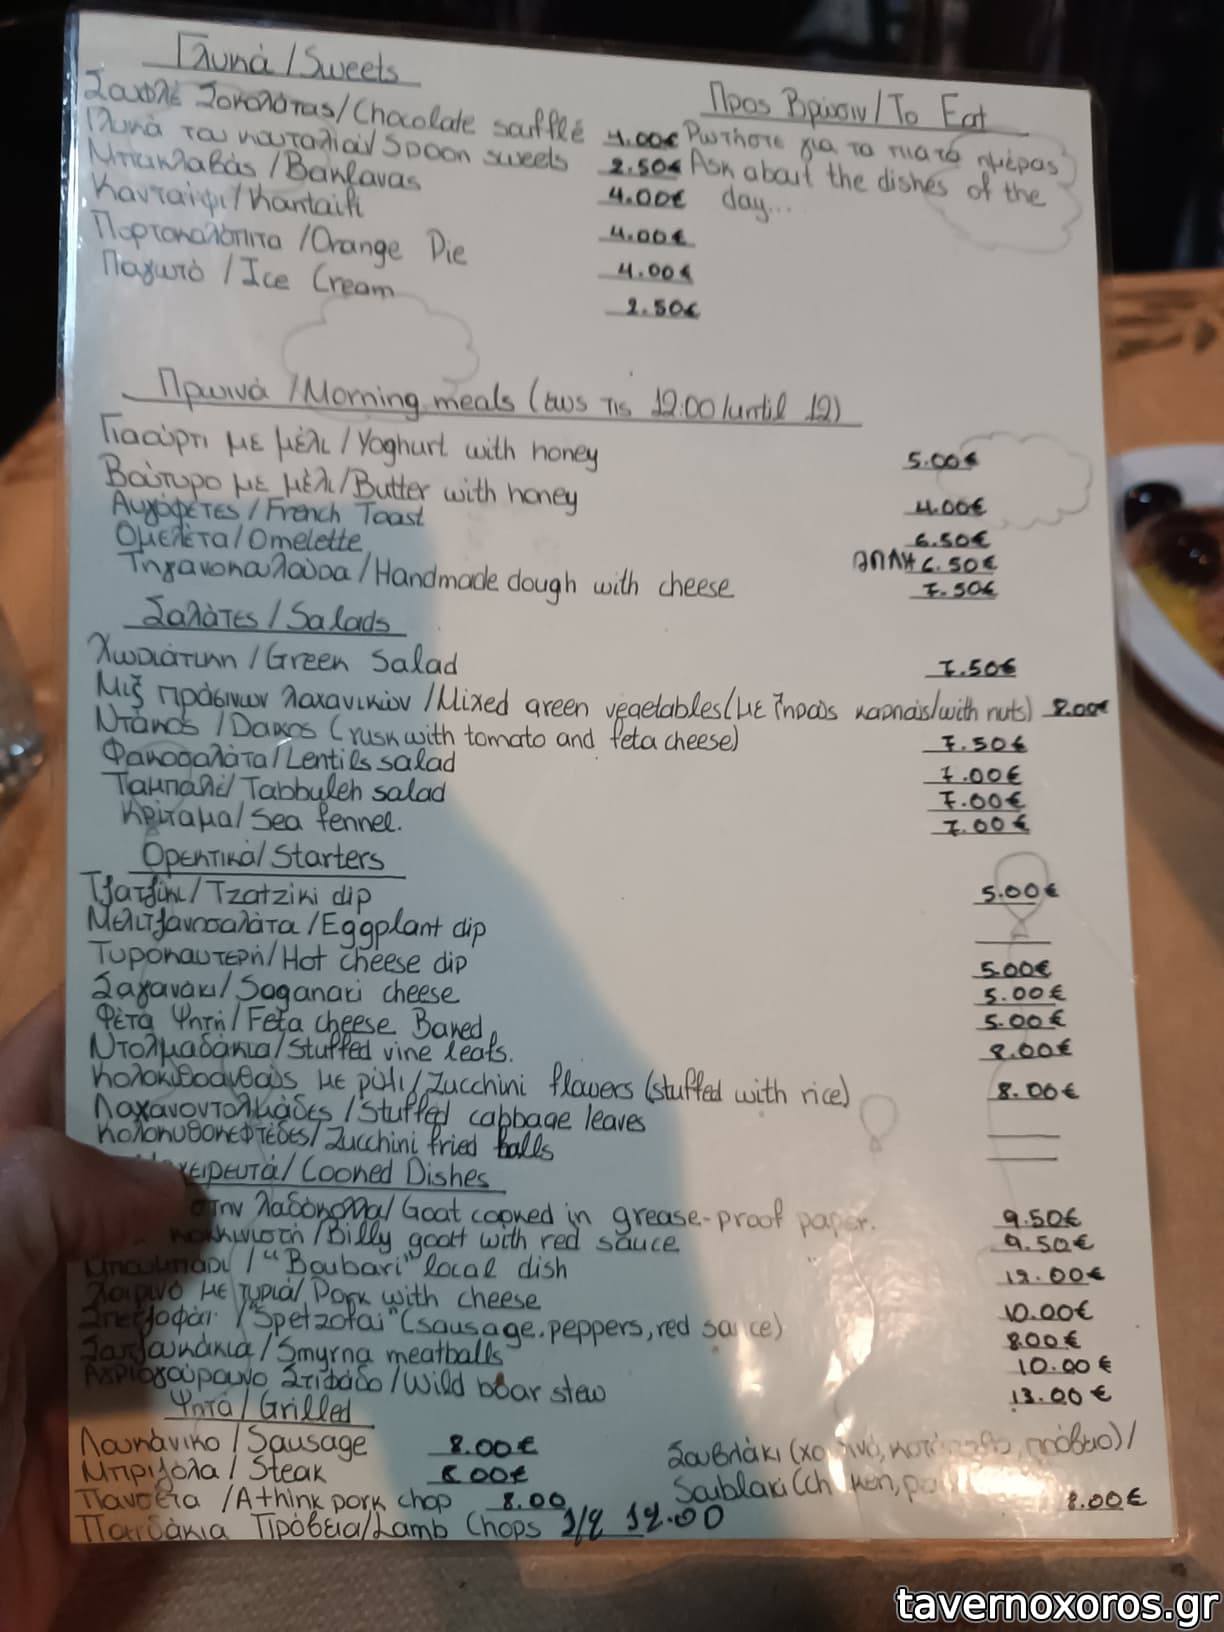 Γλυκά / Sweets
Σουφλέ Σοκολάτας / Chocolate soufflé 4.00€
Γλυκά του κουταλιού / Spoon sweets 2.50€
Μπακλαβάς / Baklavas 4.00€
Κανταΐφι / Kantaifi 4.00€
Πορτοκαλόπιτα / Orange Pie 4.00€
Παγωτό / Ice Cream 2.50€
Προς Βρώσιν / To Eat
Ρωτήστε για τα πιάτα ημέρας
Ask about the dishes of the
day...
Πρωινά / Morning meals (εως τις 12:00 / until 12)
Γιαούρτι με μέλι / Yoghurt with honey 5.00€
Βούτυρο με μέλι / Butter with honey 4.00€
Αυγόφετες / French Toast 6.50€
Ομελέτα / Omelette ΑΠΛΗ 6.50€
Τηγανοκουλούρα / Handmade dough with cheese 7.50€
Σαλάτες / Salads
Χωριάτικη / Green Salad 7.50€
Μιξ πράσινων λαχανικών / Mixed green vegetables (με ξηρούς καρπούς / with nuts) 8.00€
Ντάκος / Dakos (rusk with tomato and feta cheese) 7.50€
Φακοσαλάτα / Lentils salad 7.00€
Ταμπουλέ / Tabbuleh salad 7.00€
Κρίταμα / Sea fennel. 7.00€
Ορεκτικά / Starters
Τζατζίκι / Tzatziki dip 5.00€
Μελιτζανοσαλάτα / Eggplant dip
Τυροκαυτερή / Hot cheese dip 5.00€
Σαγανάκι / Saganaki cheese 5.00€
Φέτα Ψητή / Feta cheese Baked 5.00€
Ντολμαδάκια / Stuffed vine leafs. 8.00€
Κολοκυθοανθούς με ρύζι / Zucchini flowers (stuffed with rice) 8.00€
Λαχανοντολμάδες / Stuffed cabbage leaves
Κολοκυθοκεφτέδες / Zucchini fried balls
Cooked Dishes
στην λαδόκολλα / Goat cooked in grease-proof paper. 9.50€
κοκκινιστή / Billy goat with red sauce 9.50€
Μπουμπάρι / "Boubari" local dish 12.00€
Χοιρινό με τυριά / Pork with cheese 10.00€
Σπετζοφάι / "Spetzofai" (sausage, peppers, red sauce) 8.00€
Σουτζουκάκια / Smyrna meatballs 10.00€
Αγριογούρουνο Στιφάδο / Wild boar stew 13.00€
Ψητά / Grilled
Λουκάνικο / Sausage 8.00€
Μπριζόλα / Steak 8.00€
Πανσέτα / A think pork chop 8.00
Παϊδάκια Πρόβεια / Lamb Chops 1/2 12.00
Σουβλάκι (χοιρινό, κοτόπουλο, πρόβειο) /
Soublaki (chicken, 8.00€
tavernoxoros.gr